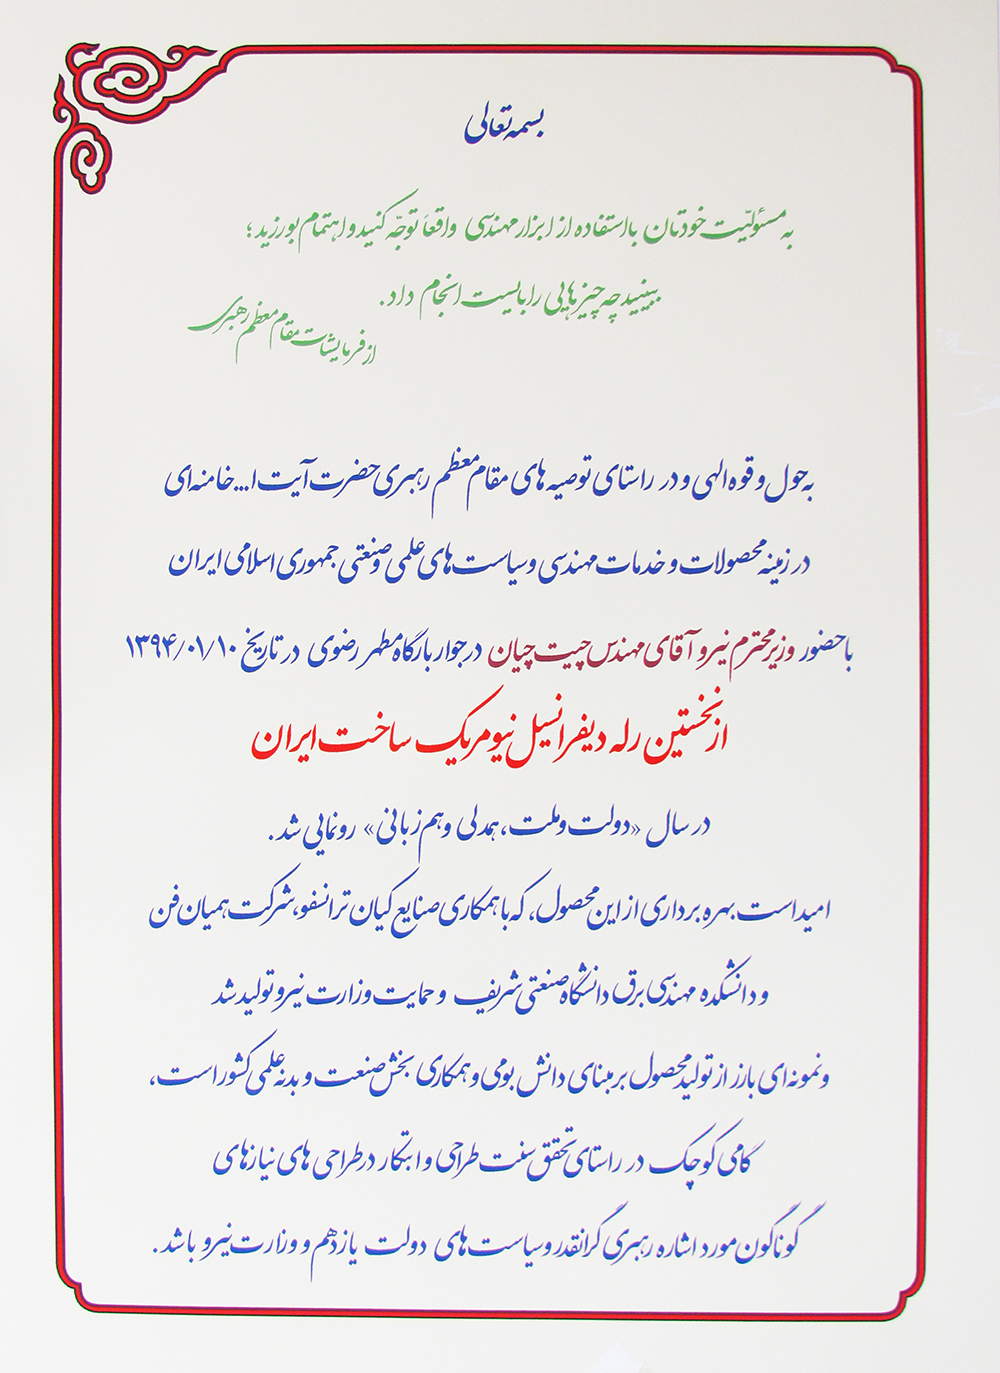 بسمه تعالی
به مسئولیّت خودتان با استفاده از ابزار مهندسی واقعاً توجّه کنید و اهتمام بورزید؛
ببینید چه چیزهایی را بایست انجام داد.
از فرمایشات مقام معظم رهبری
به حول و قوه الهی و در راستای توصیه های مقام معظم رهبری حضرت آیت ا... خامنه ای
در زمینه محصولات و خدمات مهندسی و سیاست های علمی و صنعتی جمهوری اسلامی ایران
با حضور وزیر محترم نیرو آقای مهندس چیت چیان در جوار بارگاه مطهر رضوی در تاریخ ۱۳۹۴/۰۱/۱۰
از نخستین رله دیفرانسیل نیومریک ساخت ایران
در سال «دولت و ملت، همدلی و هم زبانی» رونمایی شد.
امید است بهره برداری از این محصول، که با همکاری صنایع کیان ترانسفو، شرکت همیان فن
و دانشکده مهندسی برق دانشگاه صنعتی شریف و حمایت وزارت نیرو تولید شد
و نمونه ای بارز از تولید محصول بر مبنای دانش بومی و همکاری بخش صنعت و بدنه علمی کشور است،
گامی کوچک در راستای تحقق سنت طراحی و ابتکار در طراحی های نیازهای
گوناگون مورد اشاره رهبری گرانقدر و سیاست های دولت یازدهم و وزارت نیرو باشد.